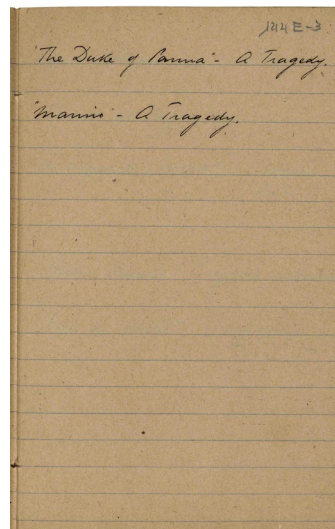 144 E-3
"The Duke of Parma" - A Tragedy.
"Marino" - A Tragedy.